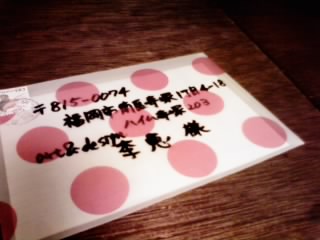 〒815-0074
福岡市南区寺塚1丁目4-18
ハイム寺塚203
art & design
李 恵 様